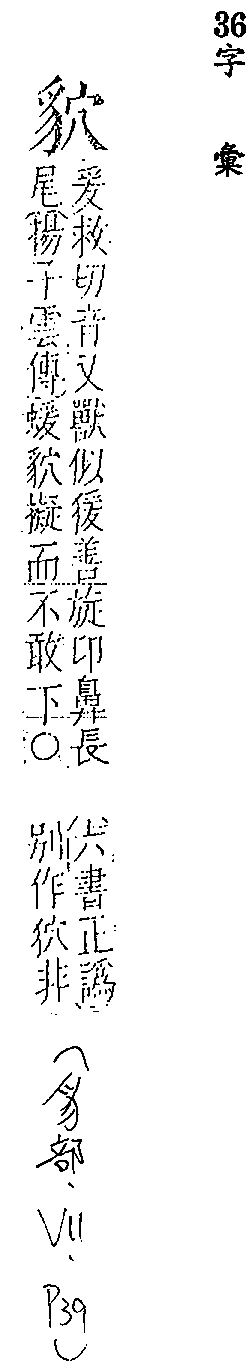 36字彙
貁
爰救切音又獸似猨善旋卬鼻長
尾揚子雲傳蝯貁擬而不敢下○
六書正譌
別作狖非
(豸部、VII、P39)